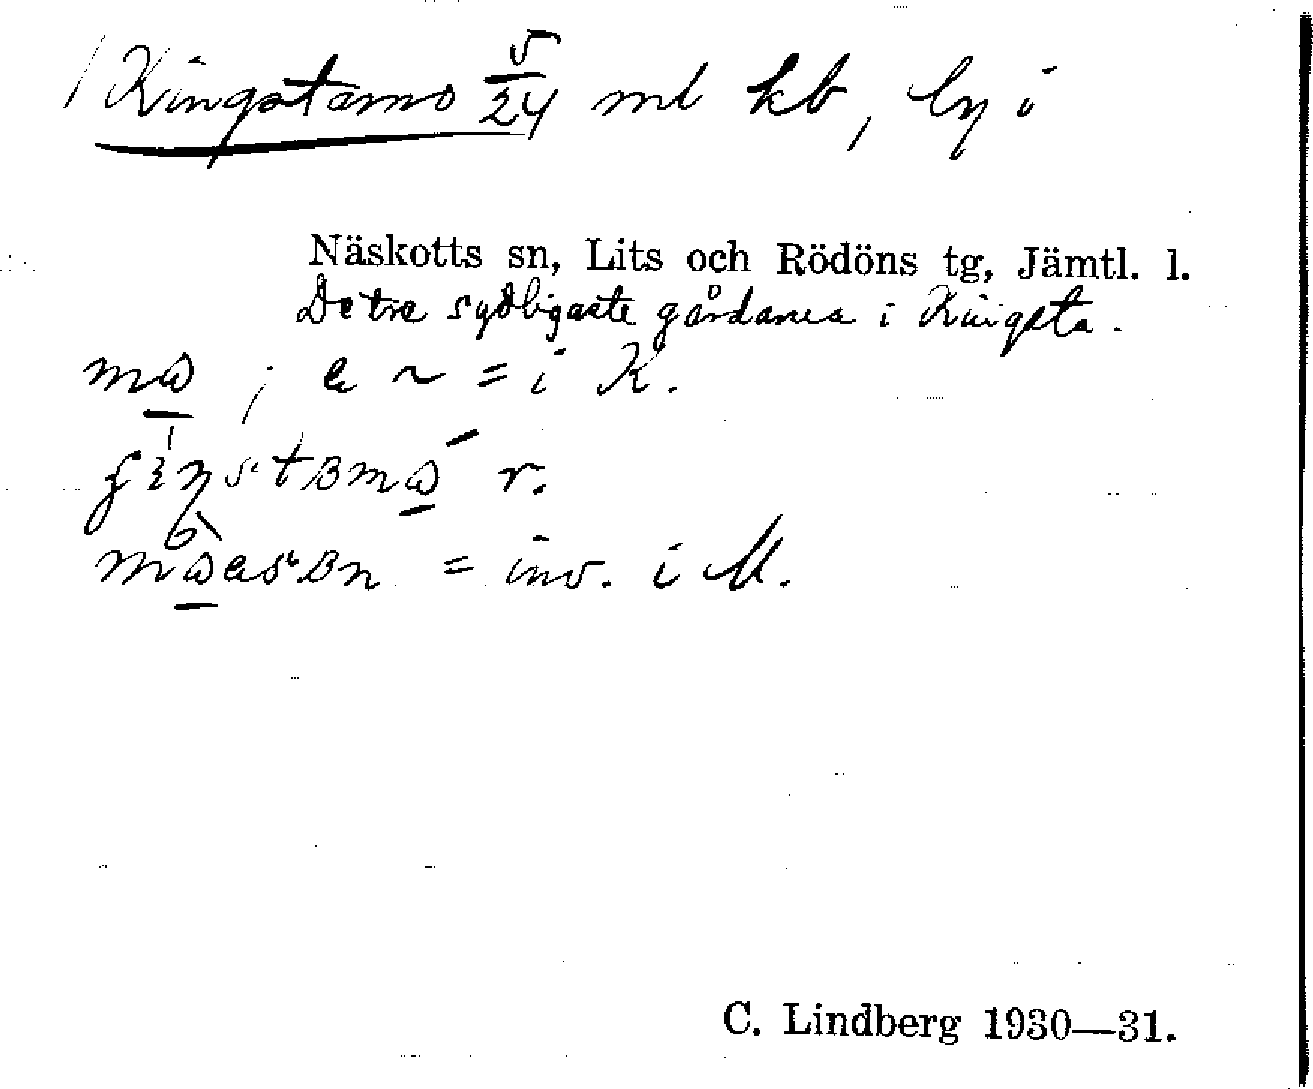 Kingstamo 5/24 ml kb, by i
Näskotts sn, Lits och Rödöns tg, Jämtl. l.
De tre sydligaste gårdarna i Kingsta.
; a ~ = i K.
r.
= inv. i M.
C. Lindberg 1930—31.